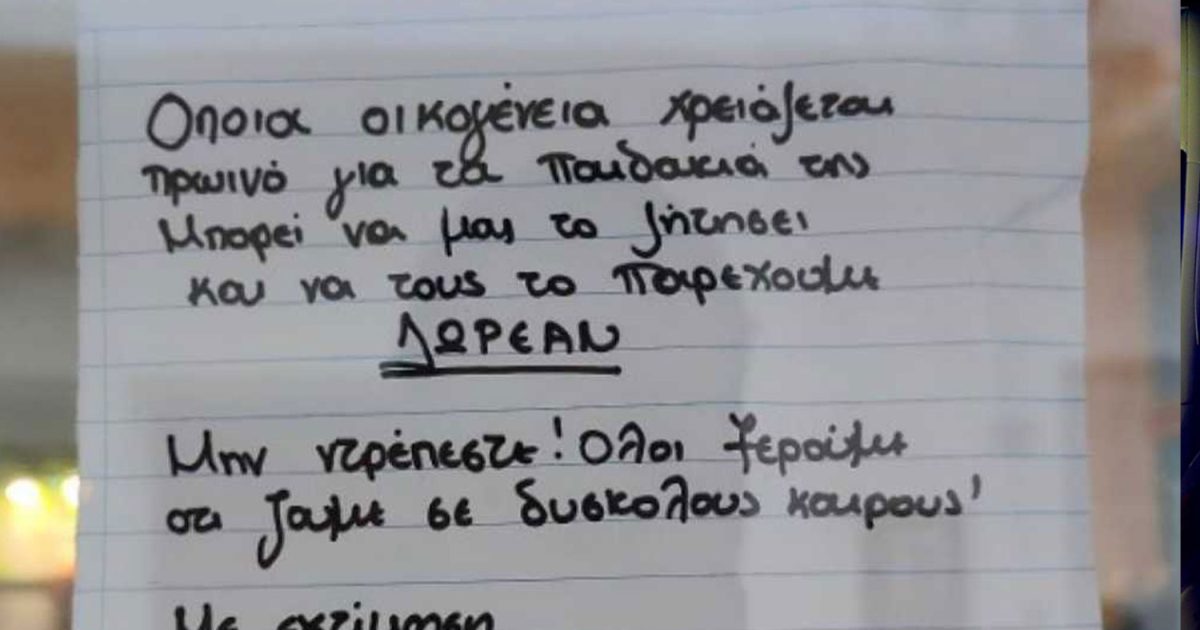 Οποια οικογένεια χρειάζεται
πρωινό για τα παιδακιά της
Μπορεί να μας το ζήτησει
και να τους το παρεχουμε
ΔΩΡΕΑΝ
Μην ντρέπεστε! Ολοι ξεροίμε
οτι ζαμε σε δυσκολους καιρους'
Με εκτίμηση